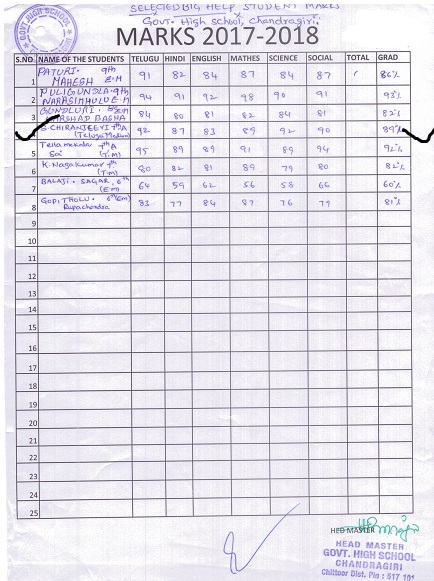 SELECTED BIG HELP STUDENT MARKS
Govt. High school, Chandragiri.
GOVT. HIGH SCHOOL
MARKS 2017-2018
S.NO NAME OF THE STUDENTS TELUGU HINDI ENGLISH MATHES SCIENCE SOCIAL TOTAL GRAD
1 PATURI. 9th MAHESH E.M 91 82 84 87 84 87 86%
2 PULIGUNDLA 9th NARASIMHULU E.M 94 91 92 98 90 91 93%
3 GUNDLURI. BASHA 84 80 81 82 84 81 82%
4 S. CHIRANJEEVI 7th A (Telugu Medium) 92 87 83 89 92 90 89%
5 7th A Sai (T.M) 95 89 89 91 89 94 92%
6 K. Nagakumar 7th (T.M) 80 82 81 89 79 80 82%
7 BALAJI. SAGAR, 6th (E.M) 64 59 62 56 58 66 60%
8 GOPI THOLU. 6th (EM) Rupachandra 83 77 84 87 76 79 81%
9
10
11
12
13
14
15
16
17
18
19
20
21
22
23
24
25
HED MASTER
HEAD MASTER
GOVT. HIGH SCHOOL
CHANDRAGIRI
Chittoor Dist. Pin : 517 101